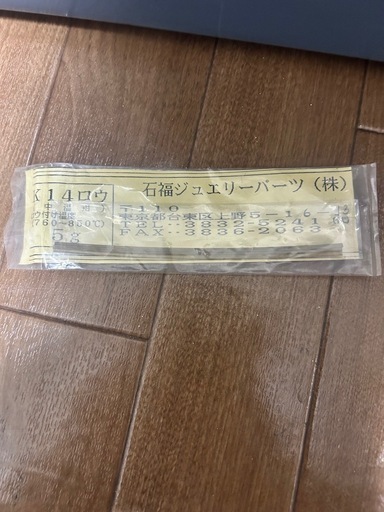 K14ロウ
(760-800℃)
石福ジュエリーパーツ（株）
〒110
東京都台東区上野5-16
TEL:3832-5241
FAX:3836-2063